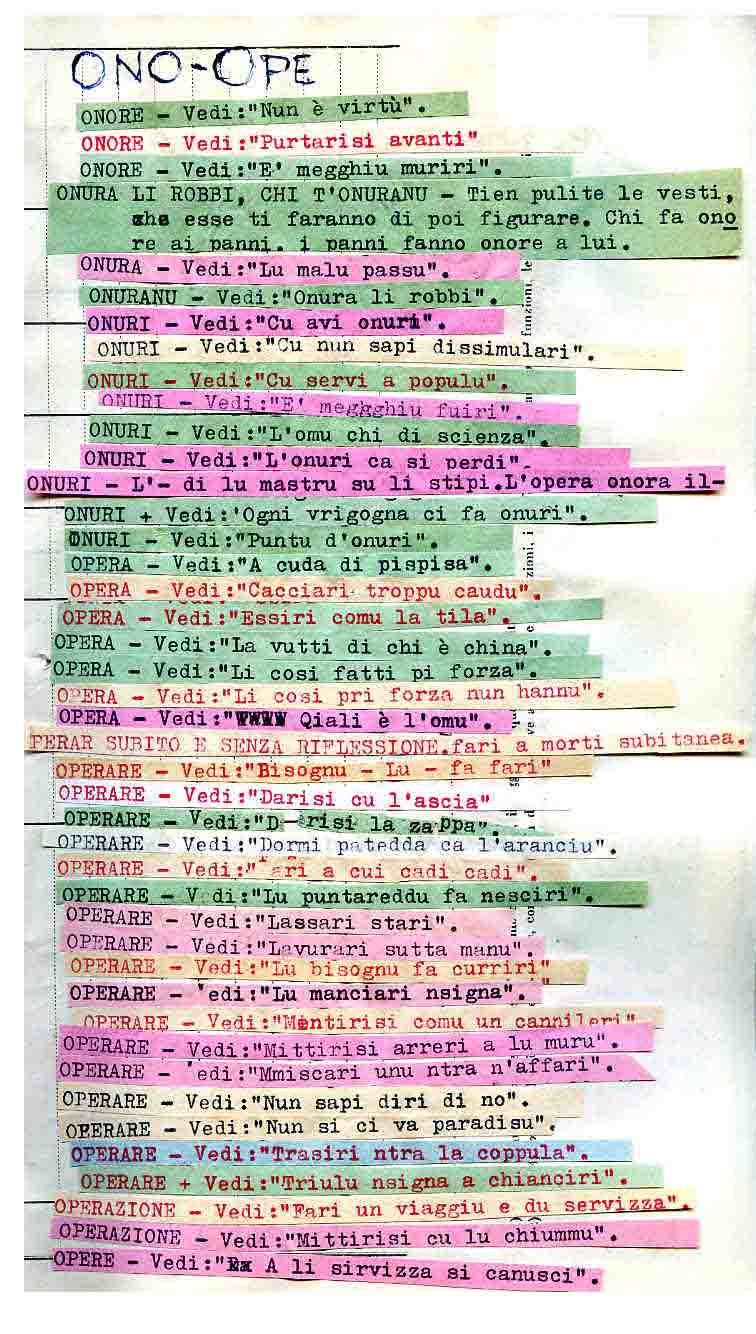 ONO-OPE
ONORE - Vedi:"Nun è virtù".
ONORE - Vedi:"Purtarisi avanti"
ONORE - Vedi:"E' megghiu muriri".
ONURA LI ROBBI, CHI T'ONURANU - Tien pulite le vesti,
che esse ti faranno di poi figurare. Chi fa ono
re ai panni. i panni fanno onore a lui.
ONURA - Vedi:"Lu malu passu".
ONURANU - Vedi:"Onura li robbi".
ONURI - Vedi:"Cu avi onuri".
ONURI - Vedi:"Cu nun sapi dissimulari".
ONURI - Vedi:"Cu servi a populu".
ONURI - Vedi:"E' meghghiu fuiri".
ONURI - Vedi:"L'omu chi di scienza".
ONURI - Vedi:"L'onuri ca si perdi".
ONURI - L'- di lu mastru su li stipi.L'opera onora il-
ONURI + Vedi:'Ogni vrigogna ci fa onuri".
ONURI - Vedi:"Puntu d'onuri".
OPERA - Vedi:"A cuda di pispisa".
OPERA - Vedi:"Cacciari troppu caudu".
OPERA - Vedi:"Essiri comu la tila".
OPERA - Vedi:"La vutti di chi è china".
OPERA - Vedi:"Li cosi fatti pi forza".
OPERA - Vedi:"Li cosi pri forza nun hannu".
OPERA - Vedi:" Qiali è l'omu".
PERAR SUBITO E SENZA RIFLESSIONE.fari a morti subitanea.
OPERARE - Vedi:"Bisognu - Lu - fa fari"
OPERARE - Vedi:"Darisi cu l'ascia"
OPERARE - Vedi:"D-risi la zappa".
OPERARE - Vedi:"Dormi patedda ca l'aranciu".
OPERARE - Vedi:"ari a cui cadi cadi".
OPERARE - V di:"Lu puntareddu fa nesciri".
OPERARE - Vedi:"Lassari stari".
OPERARE - Vedi:"Lavurari sutta manu".
OPERARE - Vedi:"Lu bisognu fa curriri"
OPERARE - 'edi:"Lu manciari nsigna".
OPERARE - Vedi:"Mentirisi comu un cannileri"
OPERARE - Vedi:"Mittirisi arreri a lu muru".
OPERARE - 'edi:"Mmiscari unu ntra n'affari".
OPERARE - Vedi:"Nun sapi diri di no".
OPERARE - Vedi:"Nun si ci va paradisu".
OPERARE - Vedi:"Trasiri ntra la coppula".
OPERARE + Vedi:"Triulu nsigna a chianciri".
OPERAZIONE - Vedi:"Fari un viaggiu e du servizza".
OPERAZIONE - Vedi:"Mittirisi cu lu chiummu".
OPERE - Vedi:" A li sirvizza si canusci".